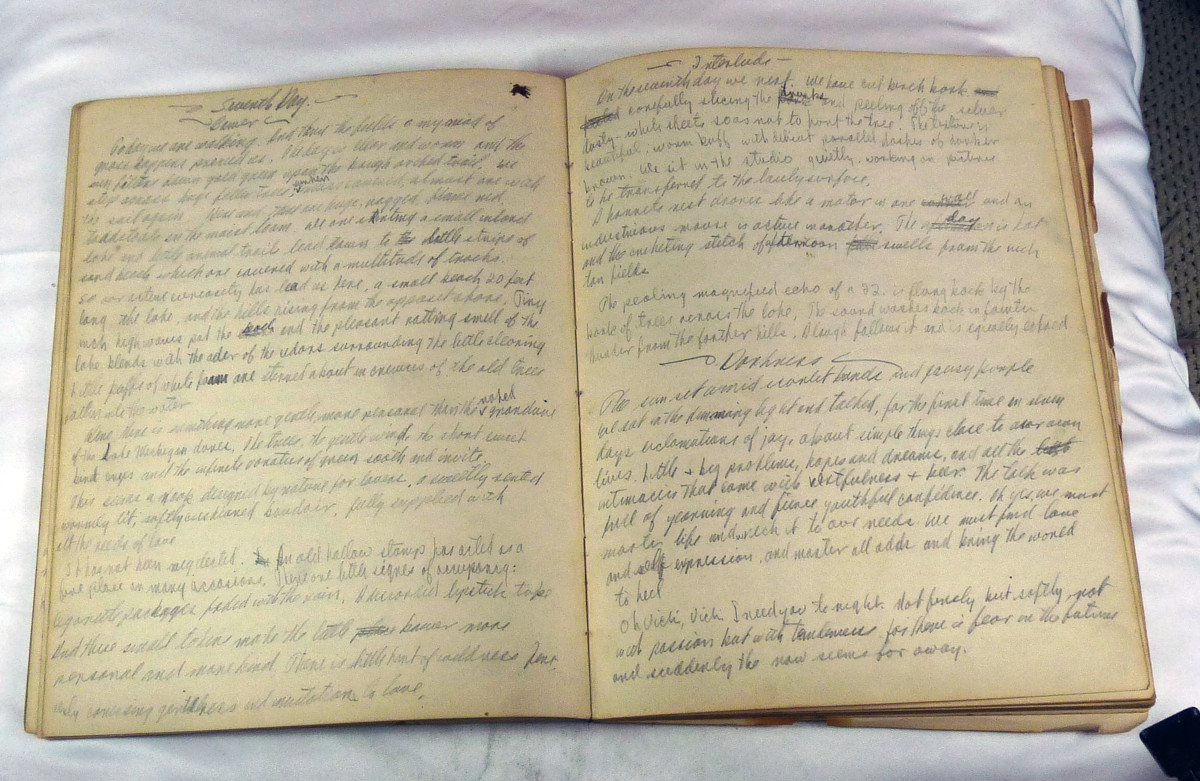 Seventh Day.
Bower
Today we are walking. And thus the fields a myriad of
grasshoppers precede us. The day is clear and warm and the
sun filters down gold green upon the bough arched trail. we
step across huge fallen trees covered, almost one with
the soil again. there are huge, ragged, flame red
toadstools in the moist loam. all one a small inland
lake and little animal trails lead down to little strips of
sand beach which are covered with a multitude of tracks.
So our active curiosity has lead us here, a small beach 20 feet
long, the lake, and the hills rising from the opposet shore. Tiny
inch high waves pat the and the pleasant rotting smell of the
lake blends with the oder of the cedars surrounding the little clearing
little puffs of white foam are stirred about in crevices of the old trees
fallen into the water
Here, there is something more gentle, more pleasant than the naked grandaire
of the Lake Michigan dunes. The trees, the gentle wind, the short sweet
bird cries and the infinite varieties of green sooth and invite.
This seems a nook designed by nature for lovers. a sweetly sented
warmly lit, softly cushioned boudoir, fully supplied with
all the needs of love
It has not been neglected. An old hollow stump has acted as a
fire place on many occasions. There are little signes of occupancy:
cigarette packages faded with the rain. A discarded lipstick tube
And these small tokens make the little bower more
personal and more kind. There is little hint of sadness here
only caressing gentleness and invitation to love.
Interlude
On the seventh day we rest. We have cut birch bark
carefully slicing the and peeling off the silver
dusty-white sheets so as not to hurt the tree. The texture is
beautiful; warm buff with delicat paralled dashes of darker
brown. We sit in the studio quietly, working on pictures
to be transferred to the lovely surface.
A hornets nest drones like a motor in one wall and an
industrious mouse is active in another. The day is hot
and the cricketing stitch of afternoon swells from the rich
tan fields.
The pealing magnified echo of a 22. is flung back by the
bank of trees across the lake. The sound washes back in fainter
thunder from the farther hills. A laugh follows it and is equally echoed.
Darkness
The sun set amid scarlet bands and pansy purple
We sat in the dimming light and talked, for the first time in seven
days exclamations of joy, about simple things close to our own
lives. little + big problems, hopes and dreams, and all the
intimacies that come with restfulness + beer. The talk was
full of yearning and fierce youthful confidence. Oh yes, we must
master life and reck it to our needs. We must find love
and self expression, and master all odds and bring the world
to heel
Oh Vicki, Vicki I need you to night. Not fiercly but softly, not
with passion but with tenderness, for there is fear in the future
and suddenly the now seems far away.